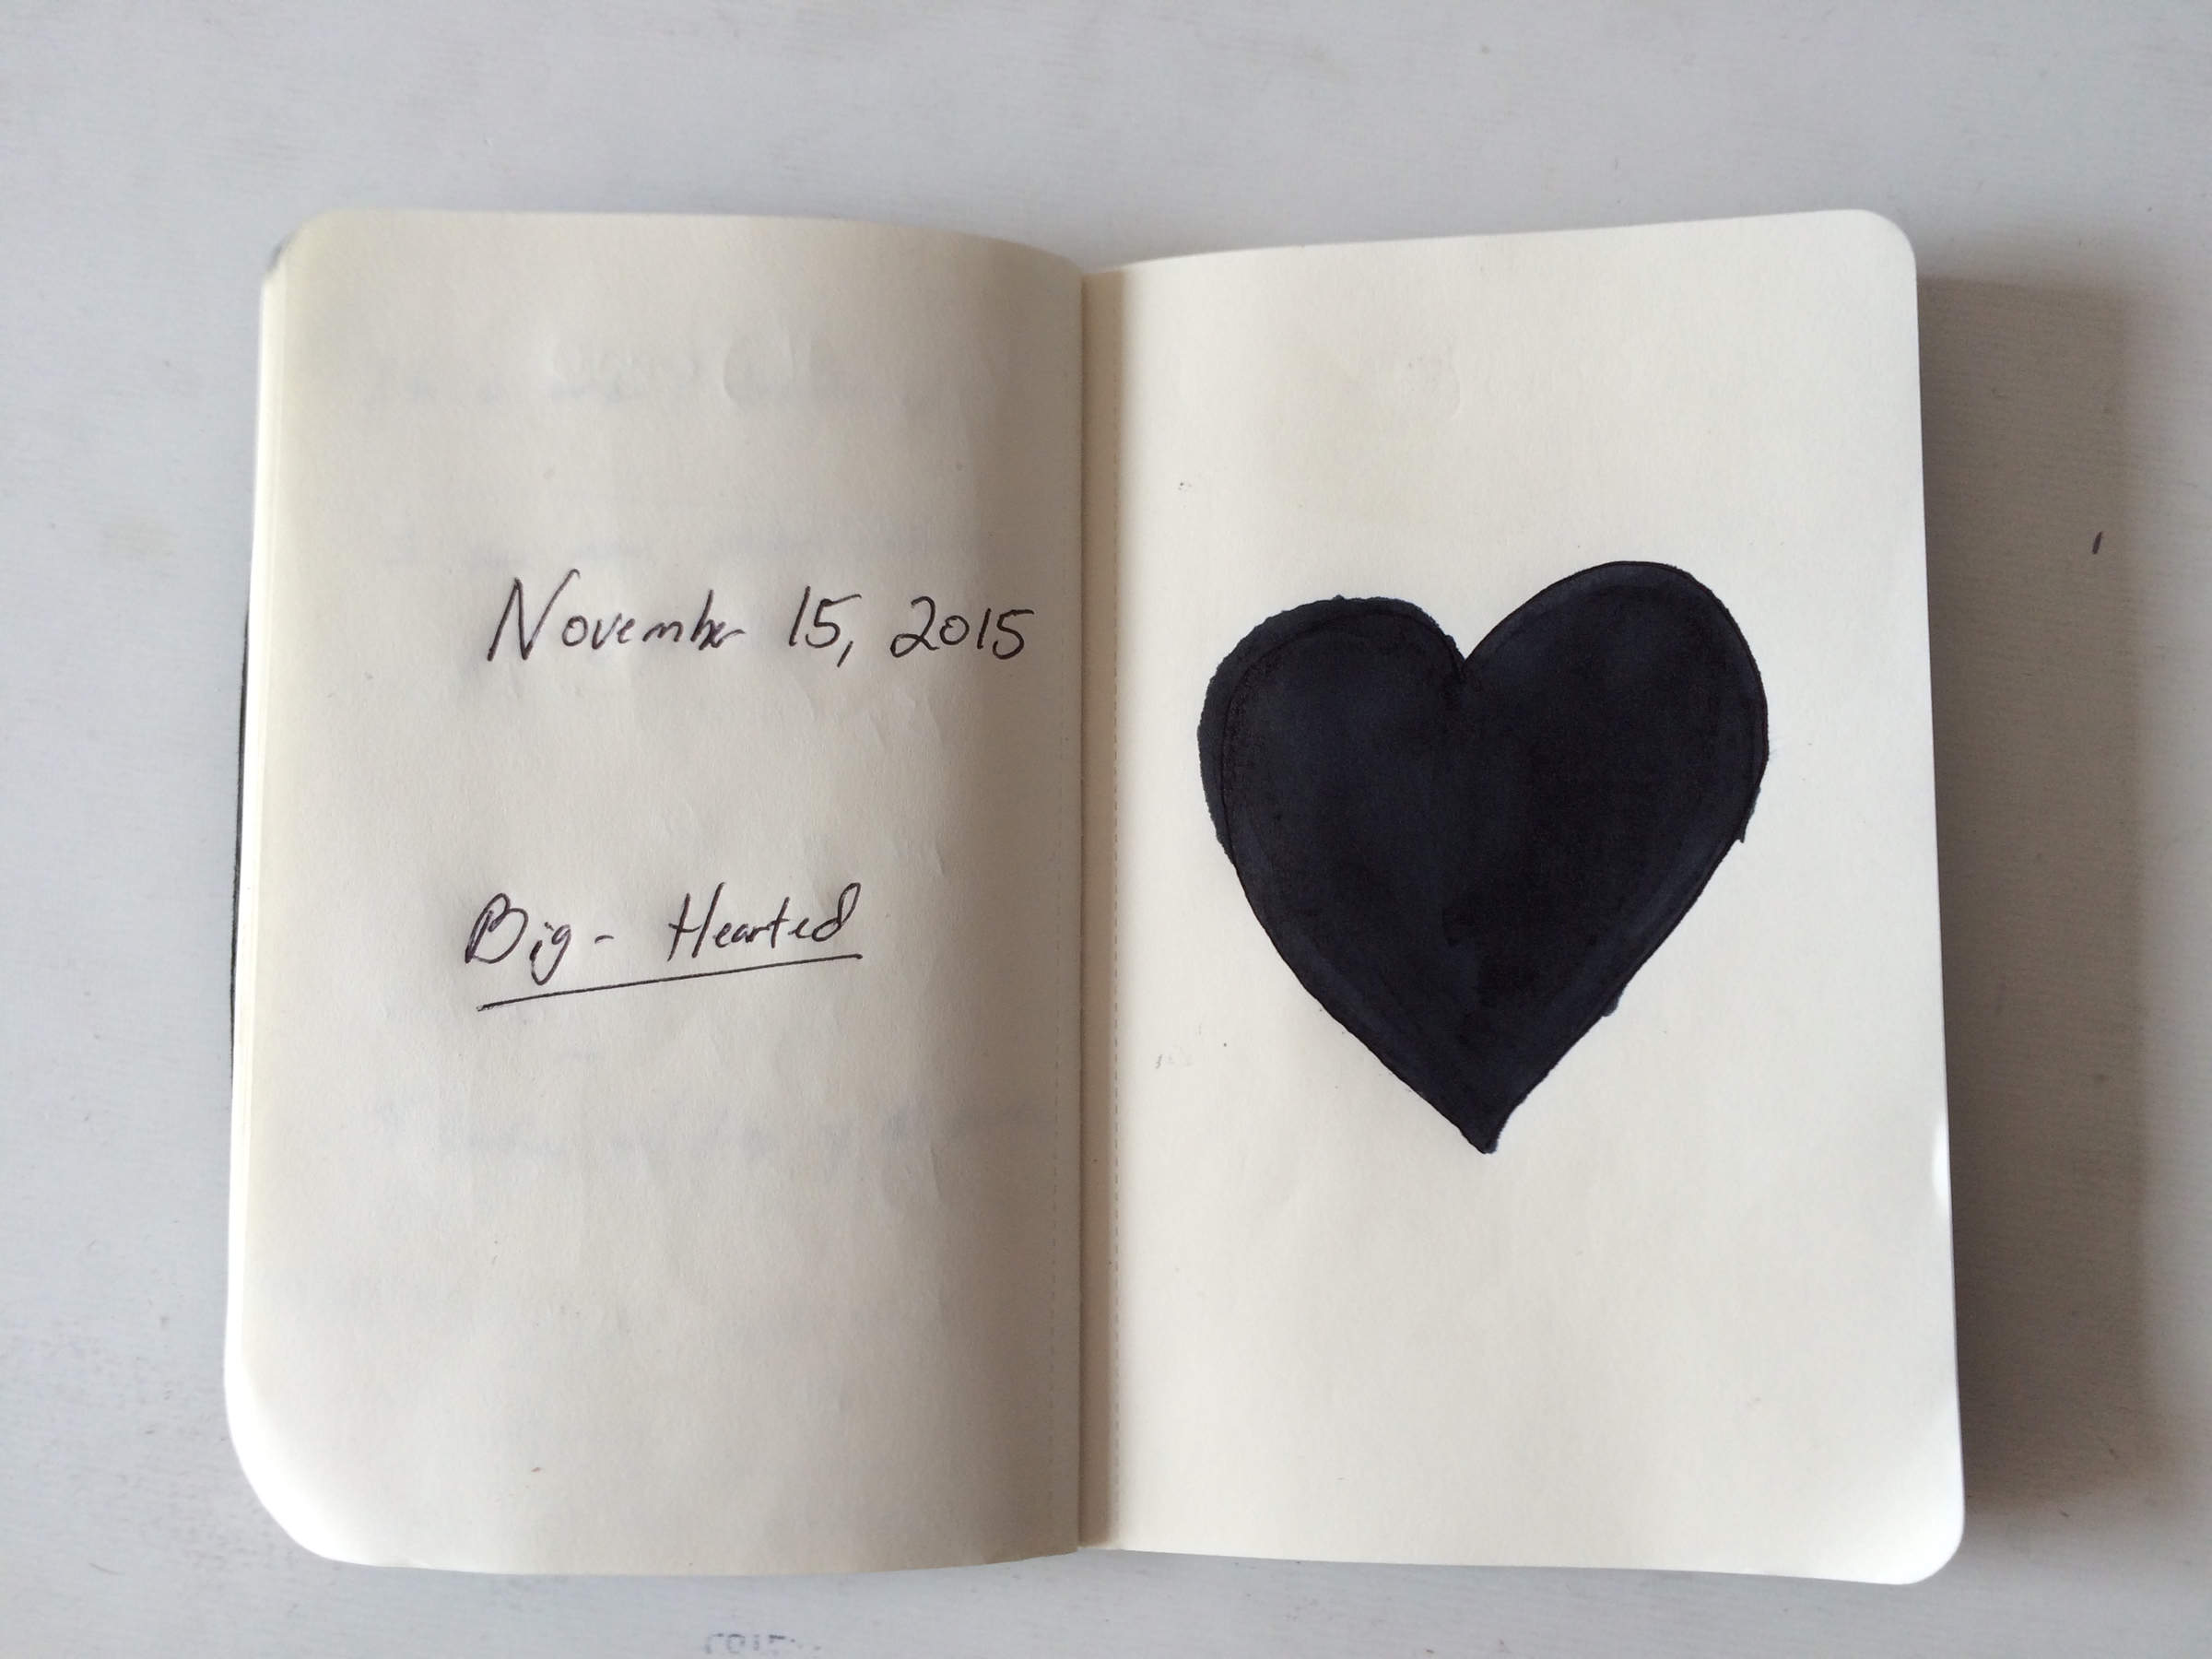 November 15, 2015
Big - Hearted